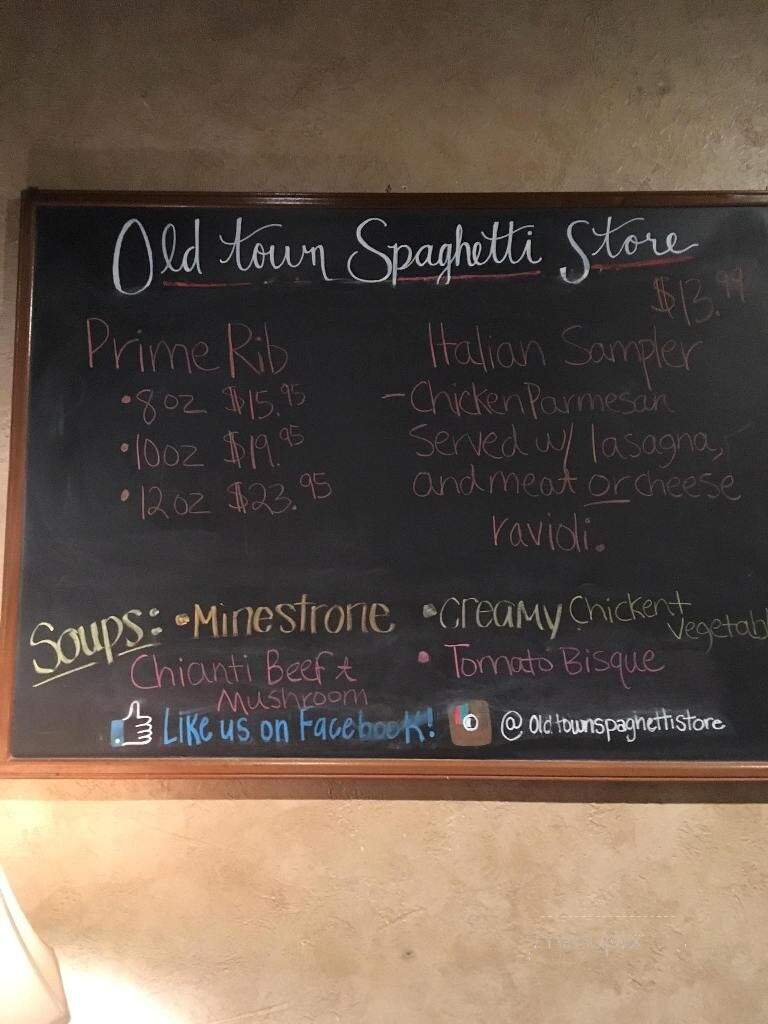 Old town Spaghetti Store
Prime Rib
• 8oz $15.95
• 10oz $19.95
• 12oz $23.95
$13.99
Italian Sampler
- Chicken Parmesan
Served w/ lasagna,
and meat or cheese
ravioli.
Soups: • Minestrone
Chianti Beef +
Mushroom
• Creamy Chicken +
Vegetabl
• Tomato Bisque
Like us on Facebook!
@oldtownspaghettistore
menupix